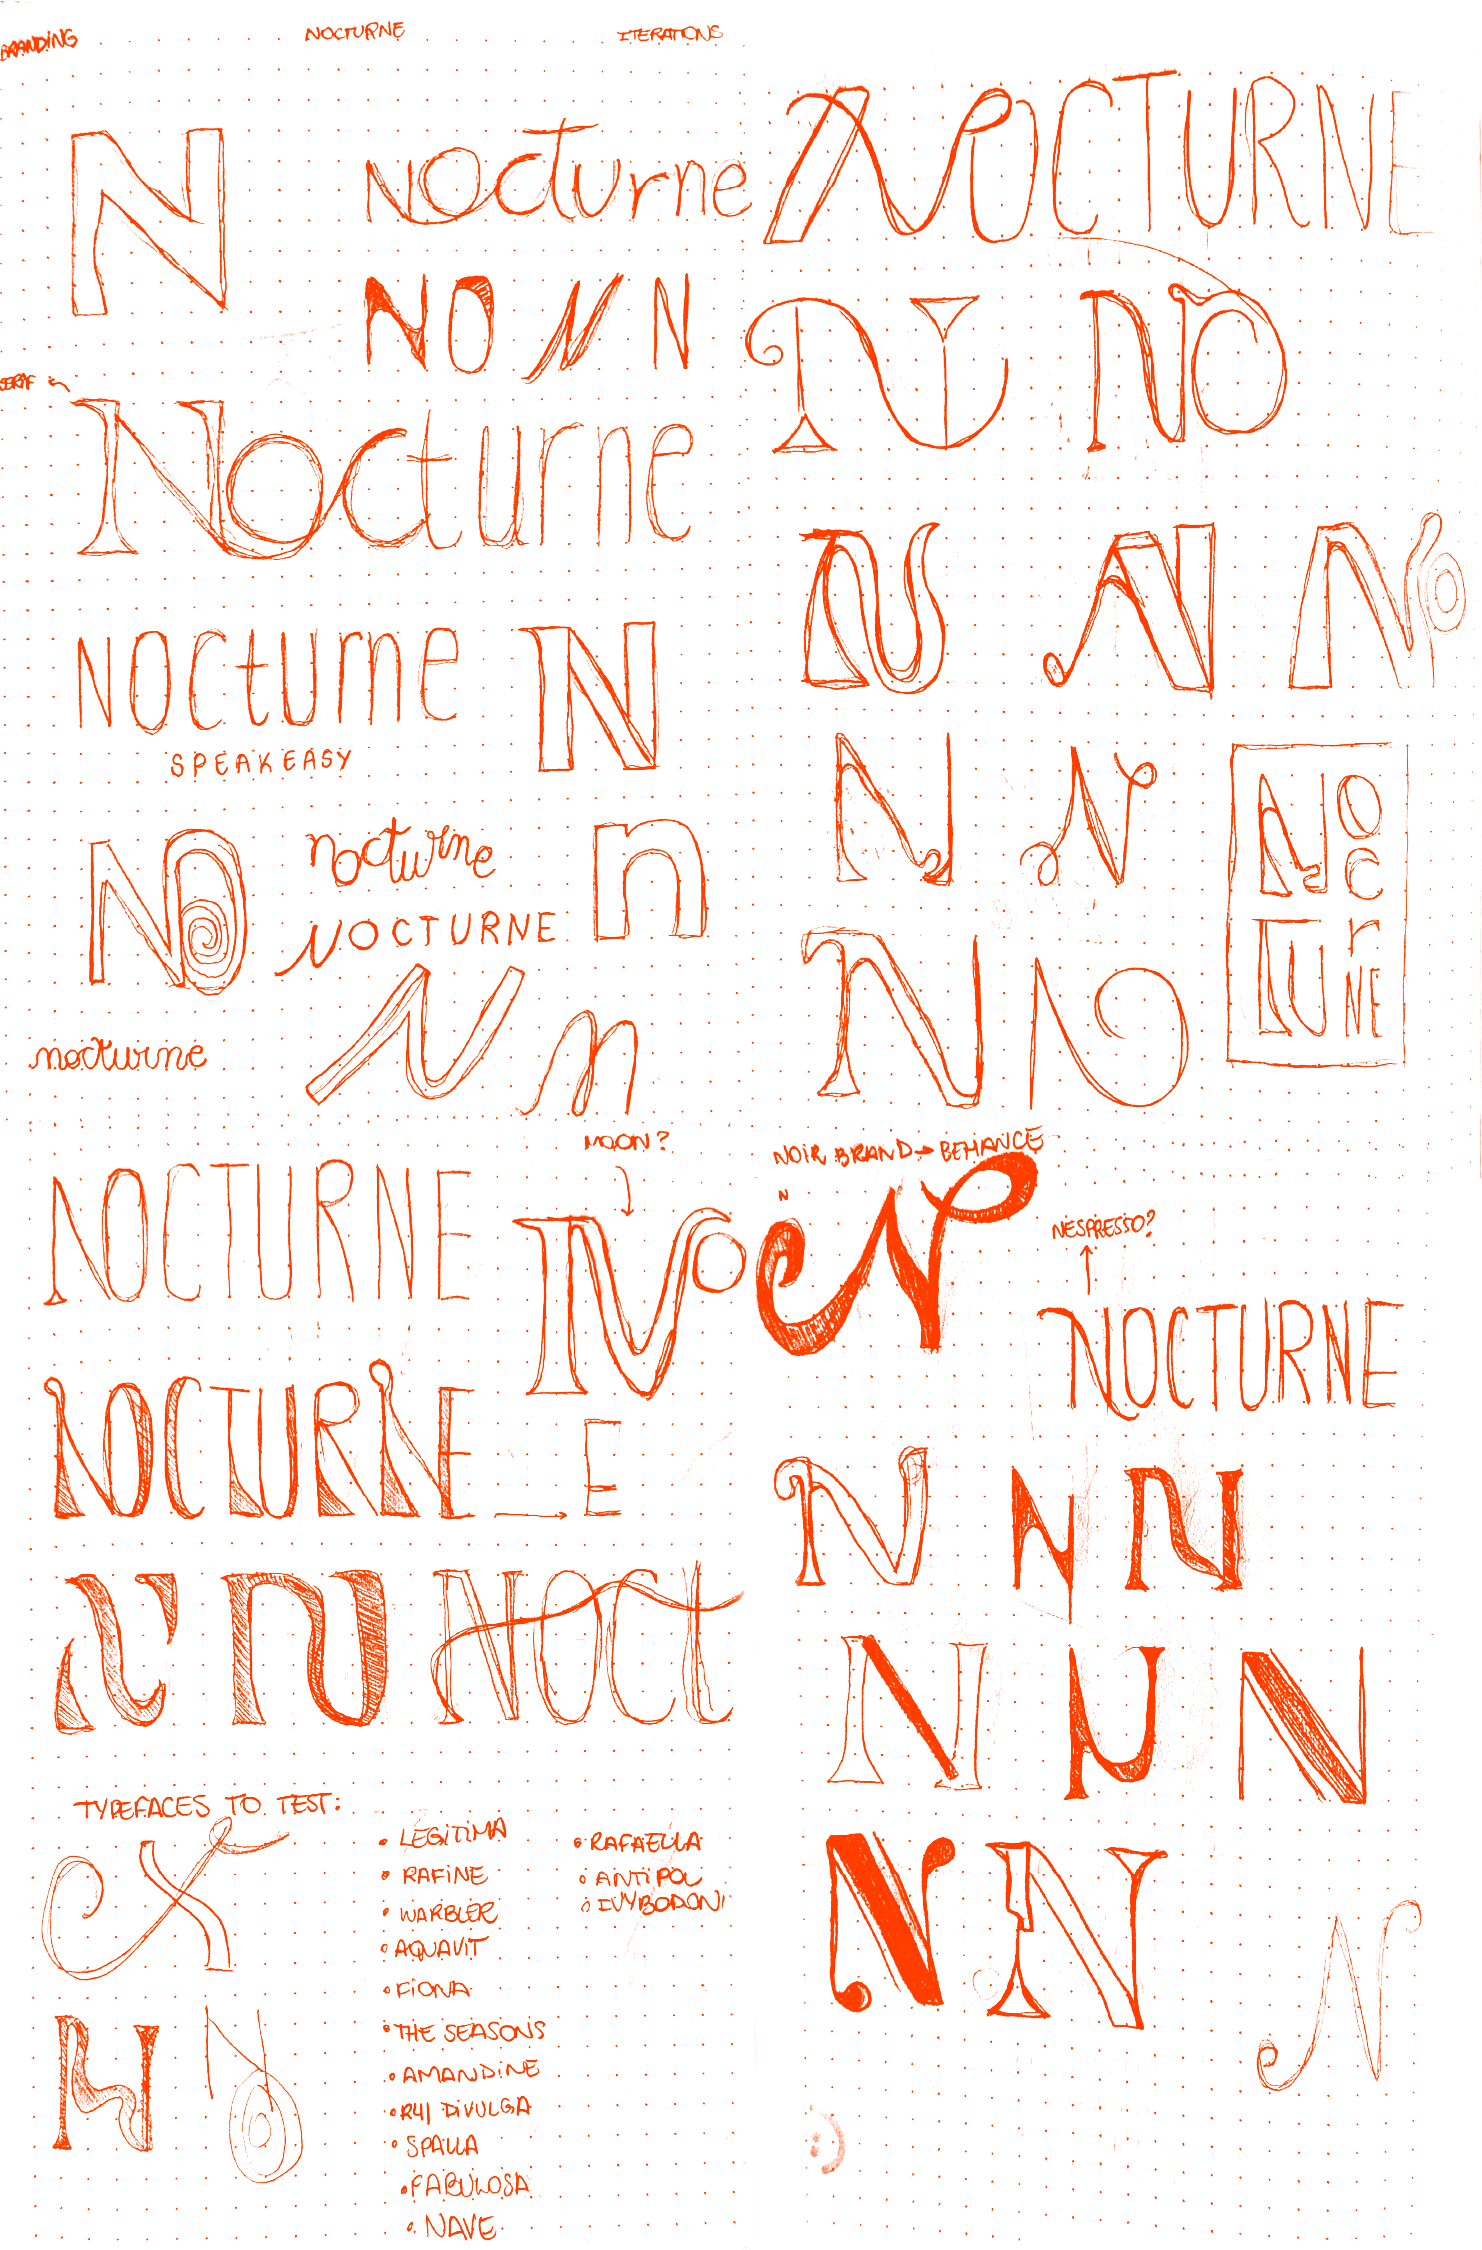 BRANDING
NOCTURNE
ITERATIONS
N
Nocturne
NO N N
SERAF
Nocturne
NOCTURNE
SPEAKEASY
N
NO
nocturne
n
NOCTURNE
N n
nocturne
MOON?
NOCTURNE
NO
NOCTURNE
E
N N NOCT
TYPEFACES TO TEST:
N
N NO
• LEGITIMA
• RAFINE
• WARBLER
• AQUAVIT
• FIONA
• THE SEASONS
• AMANDINE
• R41 DIVULGA
• SPALLA
• FABULOSA
• NAVE
• RAFAELLA
• ANTIPOL
• IVYBODONI
NOCTURNE
N NO
N N NO
N N
NOCTURNE
N NO
NOIR BRAND → BEHANCE
N
N
NESPRESSO?
NOCTURNE
N N N
N N N
N N
N